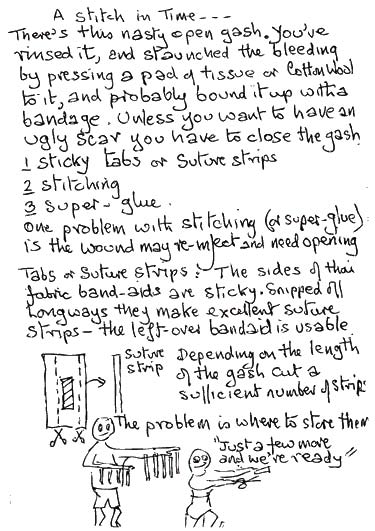 A stitch in Time---
There's this nasty open gash. You've
rinsed it, and staunched the bleeding
by pressing a pad of tissue or Cotton Wool
to it, and probably bound it up with a
bandage. Unless you want to have an
ugly scar you have to close the gash
1 sticky tabs or suture strips
2 stitching
3 super-glue.
One problem with stitching (or super-glue)
is the wound may re-infect and need opening
Tabs or suture strips: The sides of thai
fabric band-aids are sticky. Snipped off
longways they make excellent suture
strips - the left-over bandaid is usable
suture
strip
Depending on the length
of the gash cut a
sufficient number of strips
The problem is where to store them
"Just a few more
and we're ready"